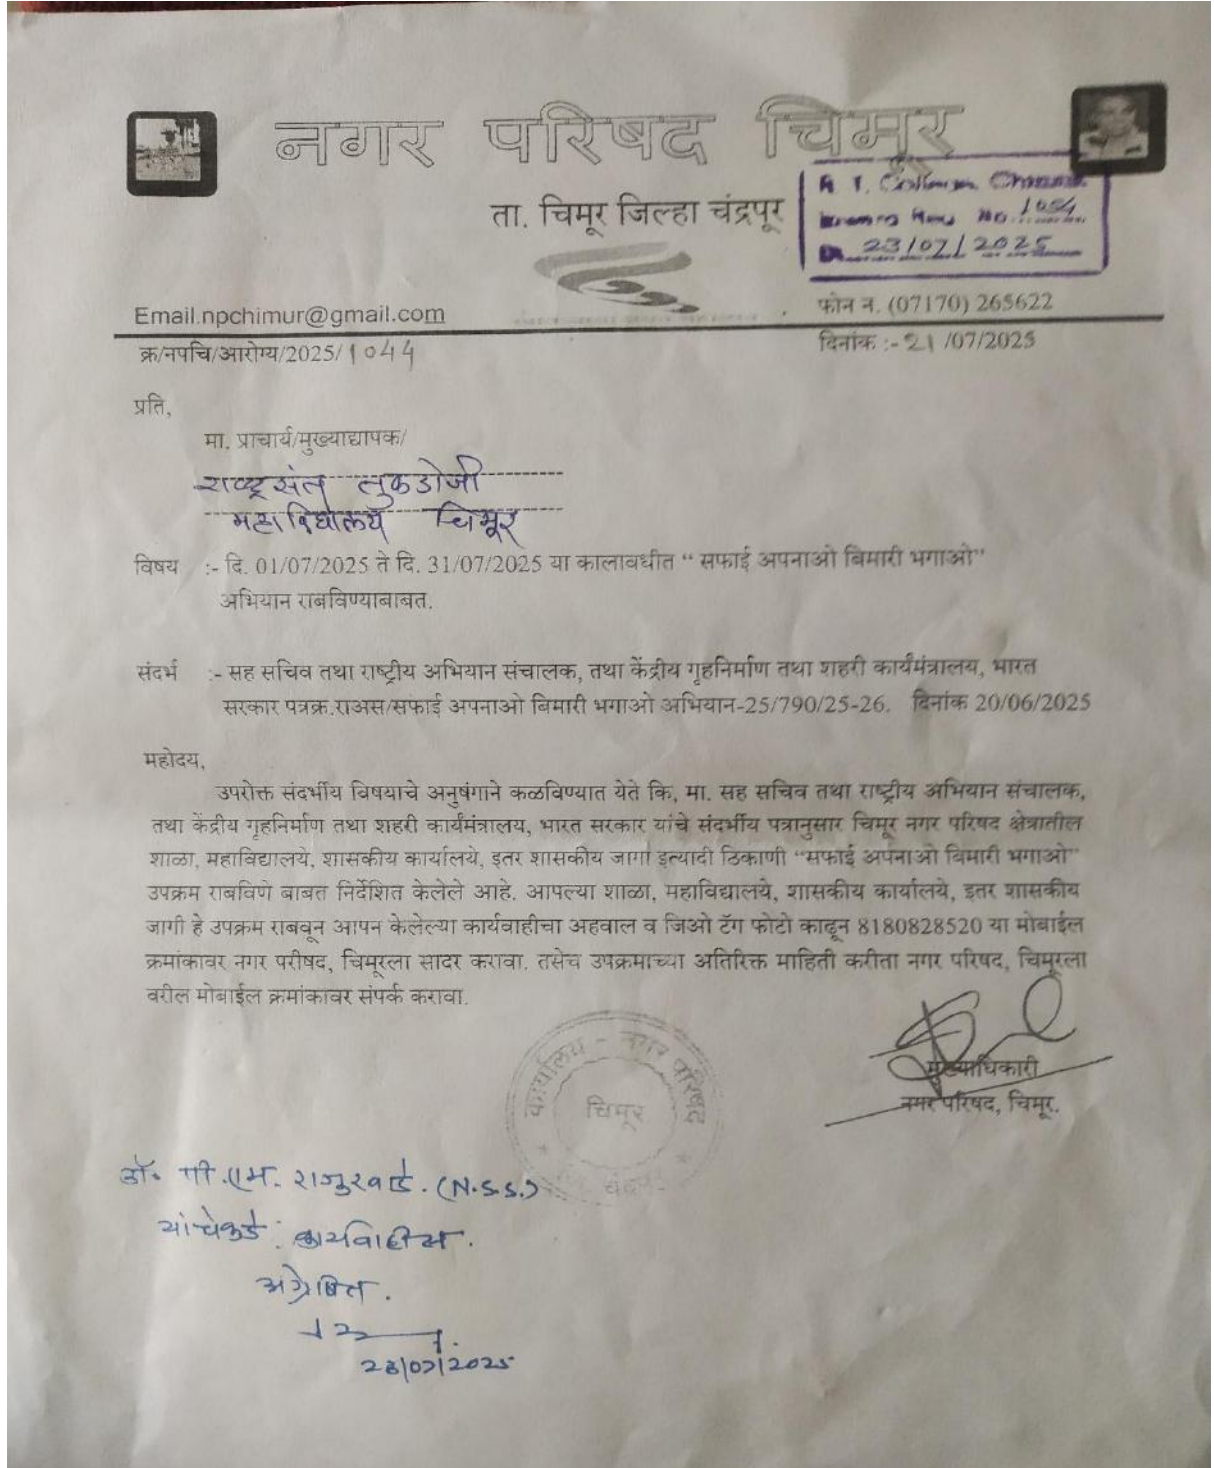 नगर परिषद चिमूर
ता. चिमूर जिल्हा चंद्रपूर
R. T. College, Chimur
No. 1084
23/07/2025
Email.npchimur@gmail.com
फोन न. (07170) 265622
क्र/नपचि/आरोग्य/2025/1044
दिनांक :- 21 /07/2025
प्रति,
मा. प्राचार्य/मुख्याद्यापक/
राष्ट्रसंत तुकडोजी
महाविद्यालय चिमूर
विषय :- दि. 01/07/2025 ते दि. 31/07/2025 या कालावधीत “ सफाई अपनाओ बिमारी भगाओ”
अभियान राबविण्याबाबत.
संदर्भ :- सह सचिव तथा राष्ट्रीय अभियान संचालक, तथा केंद्रीय गृहनिर्माण तथा शहरी कार्यंमंत्रालय, भारत
सरकार पत्रक्र.राअस/सफाई अपनाओ बिमारी भगाओ अभियान-25/790/25-26. दिनांक 20/06/2025
महोदय,
उपरोक्त संदर्भीय विषयाचे अनुषंगाने कळविण्यात येते कि, मा. सह सचिव तथा राष्ट्रीय अभियान संचालक,
तथा केंद्रीय गृहनिर्माण तथा शहरी कार्यंमंत्रालय, भारत सरकार यांचे संदर्भीय पत्रानुसार चिमूर नगर परिषद क्षेत्रातील
शाळा, महाविद्यालये, शासकीय कार्यालये, इतर शासकीय जागा इत्यादी ठिकाणी “सफाई अपनाओ बिमारी भगाओ”
उपक्रम राबविणे बाबत निर्देशित केलेले आहे. आपल्या शाळा, महाविद्यालये, शासकीय कार्यालये, इतर शासकीय
जागी हे उपक्रम राबवून आपन केलेल्या कार्यवाहीचा अहवाल व जिओ टॅग फोटो काढून 8180828520 या मोबाईल
क्रमांकावर नगर परीषद, चिमूरला सादर करावा. तसेच उपक्रमाच्या अतिरिक्त माहिती करीता नगर परिषद, चिमूरला
वरील मोबाईल क्रमांकावर संपर्क करावा.
मुख्याधिकारी
नगर परिषद, चिमूर.
कार्यालय - नगर परिषद
चिमूर
डॉ. पी.एम. राजुरवाडे. (N.S.S.)
यांचेकडे कार्यवाहीस.
अग्रेषित.
23/07/2025